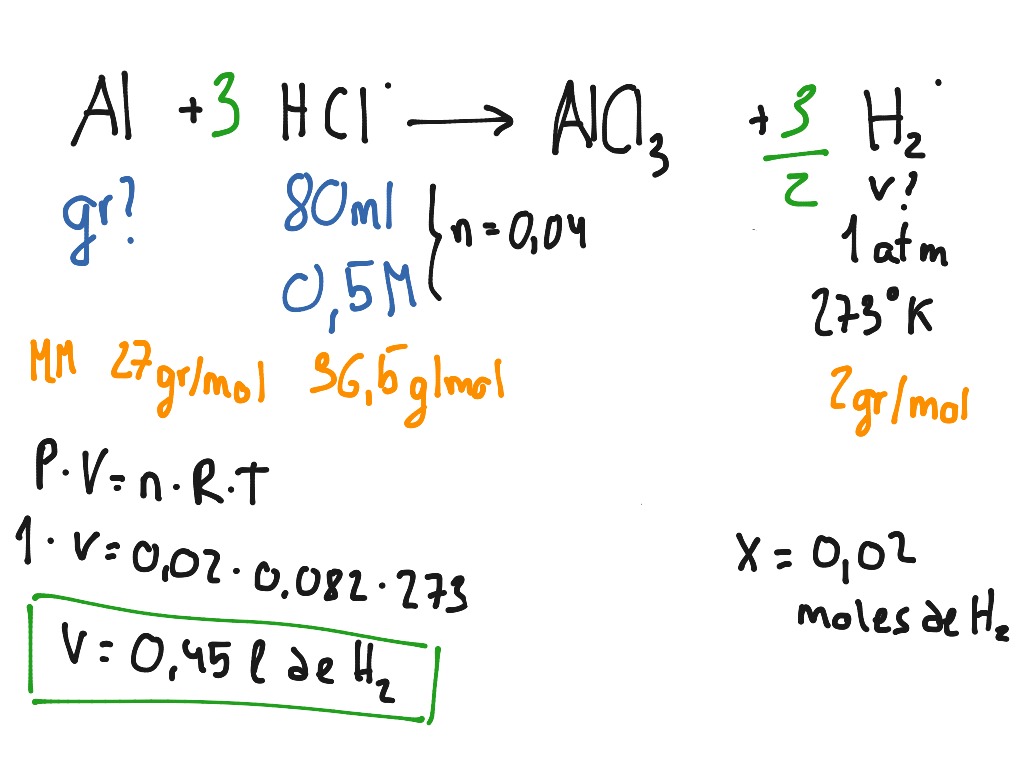 Al + 3 HCl → AlCl3 + 3/2 H2
gr? 80ml v?
0,5M } n = 0,04 1 atm
273°K
MM 27gr/mol 36,5g/mol 2gr/mol
P·V = n·R·T
1·v = 0,02·0,082·273
V = 0,45 l de H2
X = 0,02
moles de H2